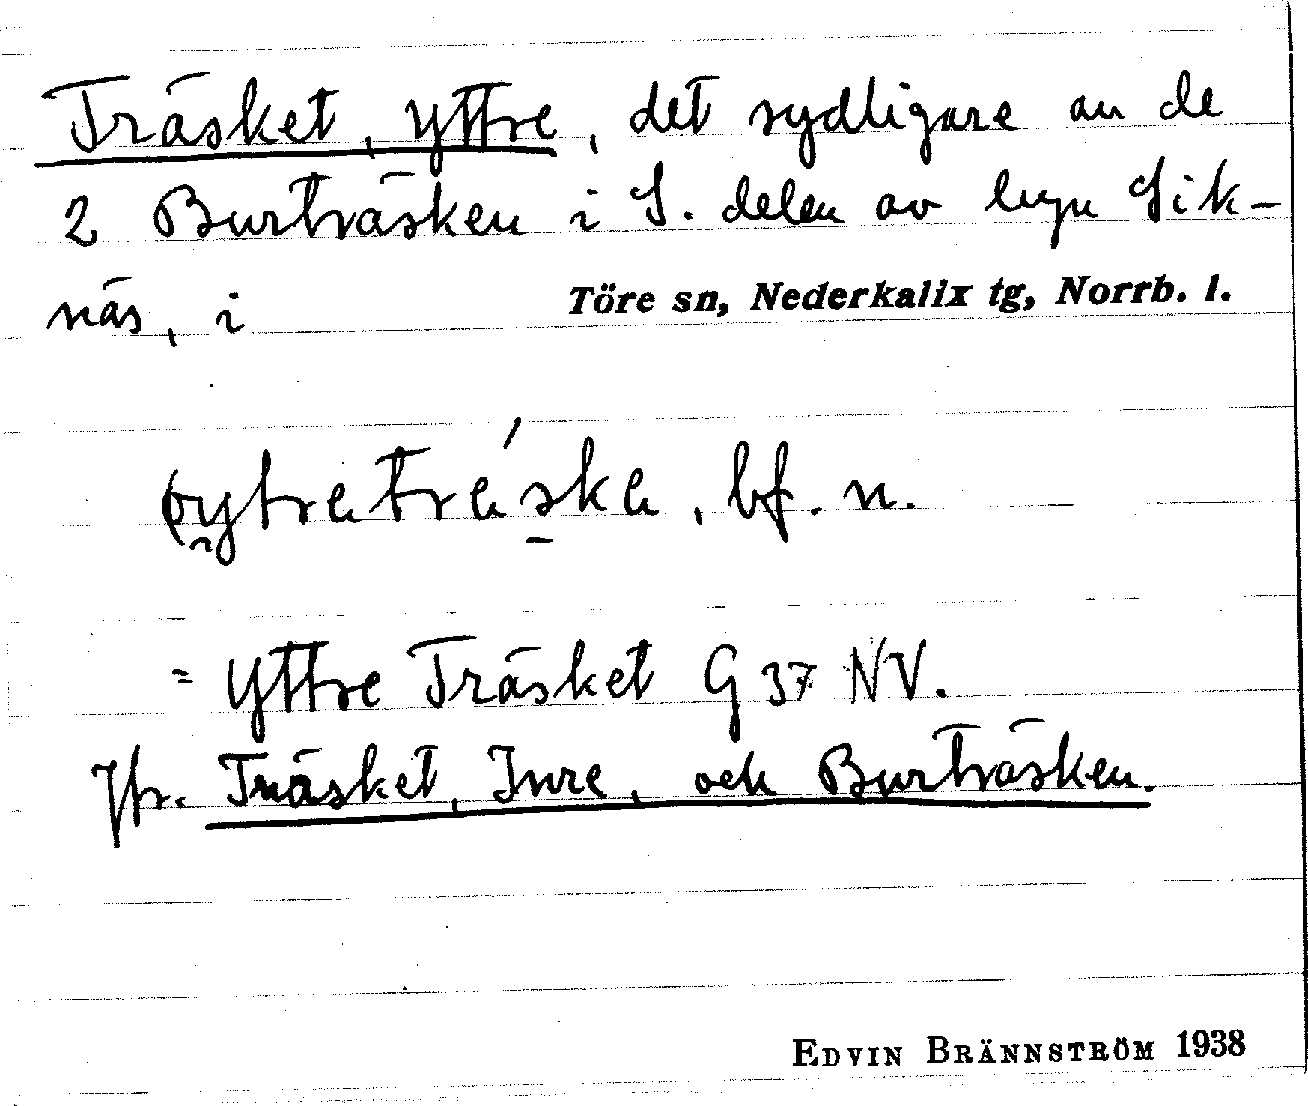 Träsket, yttre, det sydligare av de
2 Burträsken i S. delen av byn Sik-
näs, i Töre sn, Nederkalix tg, Norrb. l.
bf. n.
= Yttre Träsket G 37 NV.
Jfr. Träsket, Inre, och Burträsken.
EDVIN BRÄNNSTRÖM 1938